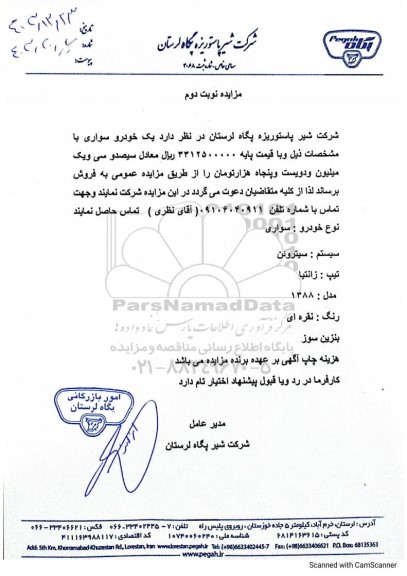 شرکت شیر پاستوریزه پگاه لرستان
سهامی خاص، شماره ثبت ۲۰۶۸
Pegah
پگاه
شماره:
تاریخ:
پیوست:
مزایده نوبت دوم
شرکت شیر پاستوریزه پگاه لرستان در نظر دارد یک خودرو سواری با
مشخصات ذیل وبا قیمت پایه ۳۳۱۲۵۰۰۰۰۰ ریال معادل سیصدو سی ویک
میلیون ودویست وپنجاه هزارتومان را از طریق مزایده عمومی به فروش
برساند لذا از کلیه متقاضیان دعوت می گردد در این مزایده شرکت نمایند وجهت
تماس با شماره تلفن ۰۹۱۰۶۰۴۰۹۱۱( آقای نظری ) تماس حاصل نمایند
نوع خودرو : سواری
سیستم : سیتروئن
تیپ : زانتیا
ParsNamadData
مدل : ۱۳۸۸
رنگ : نقره ای
مرکز فرآوری اطلاعات پارس نماد داده ها
بنزین سوز
پایگاه اطلاع رسانی مناقصه و مزایده
هزینه چاپ آگهی بر عهده برنده مزایده می باشد
۰۲۱-۸۸۳۴۹۶۷۰-۵
کارفرما در رد ویا قبول پیشنهاد اختیار تام دارد
امور بازرگانی
پگاه لرستان
مدیر عامل
شرکت شیر پگاه لرستان
آدرس: لرستان، خرم آباد، کیلومتر ۵ جاده خوزستان، روبروی پلیس راه تلفن: ۷-۳۳۴۰۲۴۴۵-۰۶۶ فکس: ۳۳۴۰۶۶۲۱-۰۶۶
کد پستی: ۶۸۱۴۱۶۳۶۱۵ شناسه ملی: ۱۰۷۴۰۰۶۰۲۴۰ کد اقتصادی: ۴۱۱۱۶۳۹۸۸۱۱۷
Add: 5th Km. Khorramabad-Khuzestan Rd., Lorestan, Iran www.lorestan.pegah.ir Tel: (+98)6633402445-7 Fax:(+98)6633406621 P.O. Box: 68135363
www.pegah.ir
Scanned with CamScanner